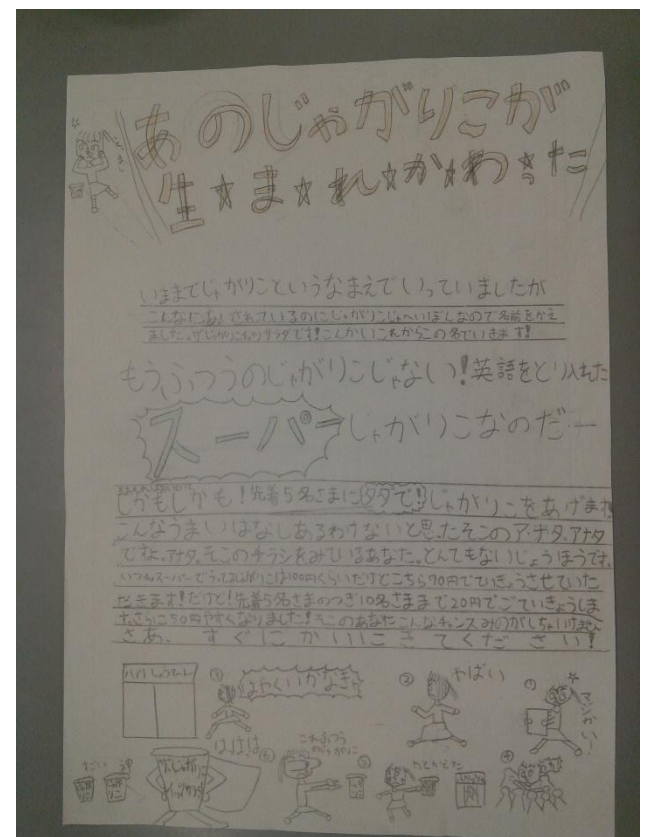 あのじゃがりこが
生☆ま☆れ☆か☆わ☆った
いままでじゃがりこというなまえでいっていましたが
こんなにあいされているのにじゃがりこじゃへいぼんなので名前をかえ
ました。ザじゃがりこinサラダです!こんかいこれからこの名でいきます!
もうふつうのじゃがりこじゃない!英語をとり入れた
スーパーじゃがりこなのだー
しかもしかも!先着5名さまに(タダで!!)じゃがりこをあげます
こんなうまいはなしあるわけないと思ったそこのア・ナ・タ、アナタ
ですよ、アナタ。そこのチラシをみているあなた。とんでもないじょうほうです。
いつもスーパーでうってるじゃがりこは100円くらいだけどこちら70円でていきょうさせていた
だきます!だけど!先着5名さまのつぎ10名さままで20円でごていきょうしま
す。さらに50円やすくなりました!そこのあなたこんなチャンスみのがしちゃいけません
さあ、すぐにかいにきてください!
①
はやくいかなきゃ
②
やばい
③
マンがい!
ははは
⑥
これふつう
⑤
④